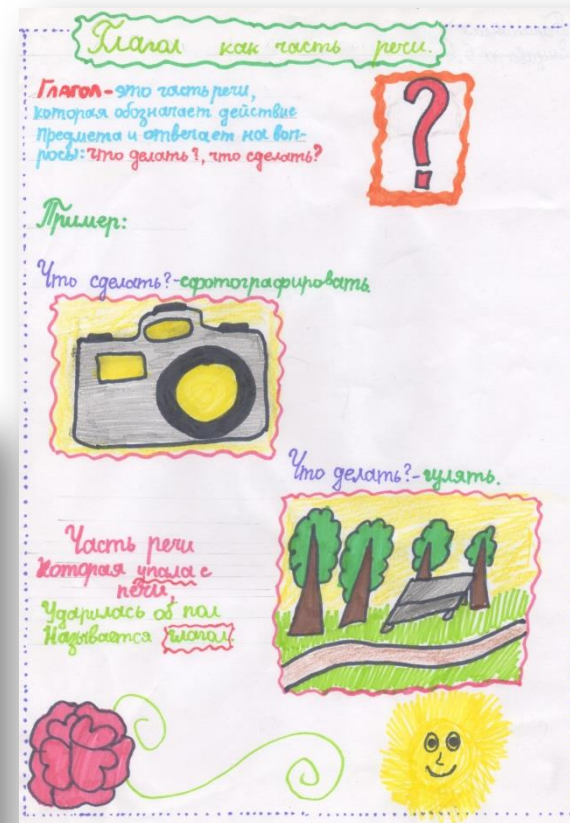 Глагол как часть речи.
Глагол - это часть речи,
которая обозначает действие
предмета и отвечает на воп-
росы: что делать?, что сделать?
Пример:
Что сделать?-сфотографировать.
Что делать?-гулять.
Часть речи
Которая упала с
печи,
Ударилась об пол
Называется глагол.